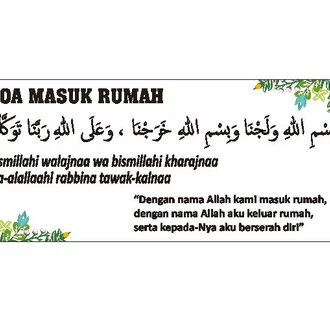 OA MASUK RUMAH
سْمِ اللهِ وَلَجْنَا وَبِسْمِ اللهِ خَرَجْنَا ، وَعَلَى اللهِ رَبَّنَا
smillahi walajnaa wa bismillahi kharajnaa
a-alallaahi rabbina tawak-kalnaa
"Dengan nama Allah kami masuk rumah,
dengan nama Allah aku keluar rumah,
serta kepada-Nya aku berserah diri"